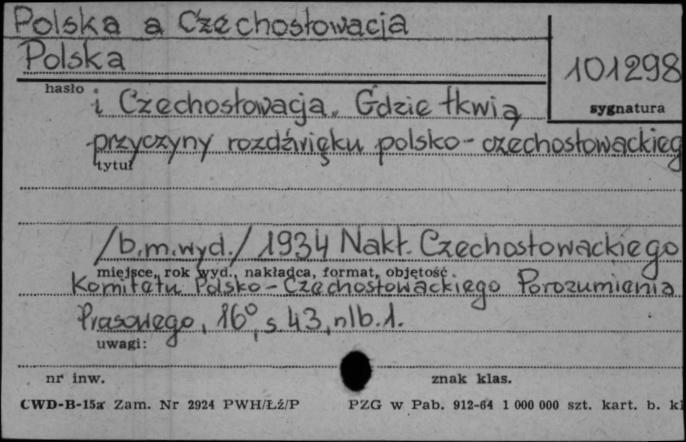 Polska a Czechosłowacja
Polska
101298
hasło
sygnatura
i Czechosłowacja. Gdzie tkwią
przyczyny rozdźwięku polsko-czechosłowackieg
tytuł
/b.m.wyd./ 1934 Nakł. Czechosłowackiego
miejsce, rok wyd., nakładca, format, objętość
Komitetu Polsko-Czechosłowackiego Porozumienia
Prasowego, 16°, s. 43, nlb. 1.
uwagi:
nr inw.
znak klas.
CWD-B-15a Zam. Nr 2924 PWH/Łź/P
PZG w Pab. 912-64 1 000 000 szt. kart. b. kl